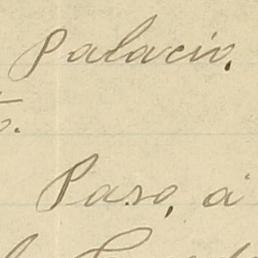 Palacio.
Paso, á